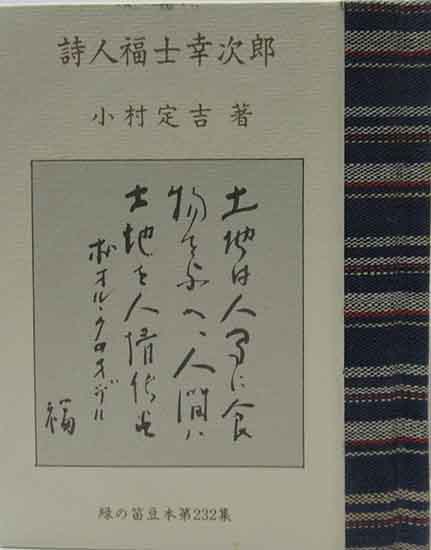 詩人福士幸次郎
小村定吉 著
土地は人間に食
物を与へ、人間は
土地を人情化
ポオル・クロオデル
福
緑の笛豆本第232集